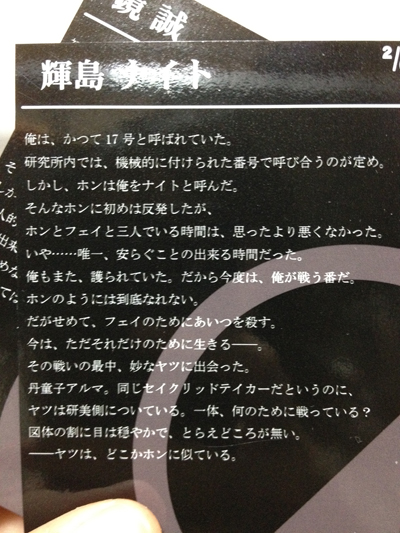 鏡 誠
2/
輝島 ナイト
俺は、かつて17号と呼ばれていた。
研究所内では、機械的に付けられた番号で呼び合うのが定め。
しかし、ホンは俺をナイトと呼んだ。
そんなホンに初めは反発したが、
ホンとフェイと三人でいる時間は、思ったより悪くなかった。
いや……唯一、安らぐことの出来る時間だった。
俺もまた、護られていた。だから今度は、俺が戦う番だ。
ホンのようには到底なれない。
だがせめて、フェイのためにあいつを殺す。
今は、ただそれだけのために生きる――。
その戦いの最中、妙なヤツに出会った。
丹童子アルマ。同じセイクリッドテイカーだというのに、
ヤツは研美側についている。一体、何のために戦っている？
図体の割に目は穏やかで、とらえどころが無い。
――ヤツは、どこかホンに似ている。